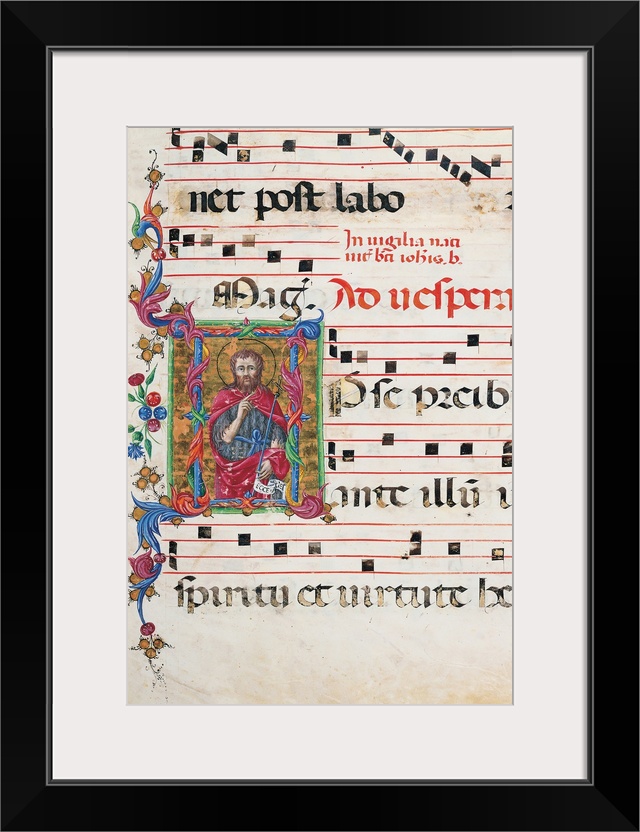 net post labo
In uigilia nati
uit bti iohis. b.
Mag. Ad uesperu
Pse preib
ante illū i
spiritu et uirtute he